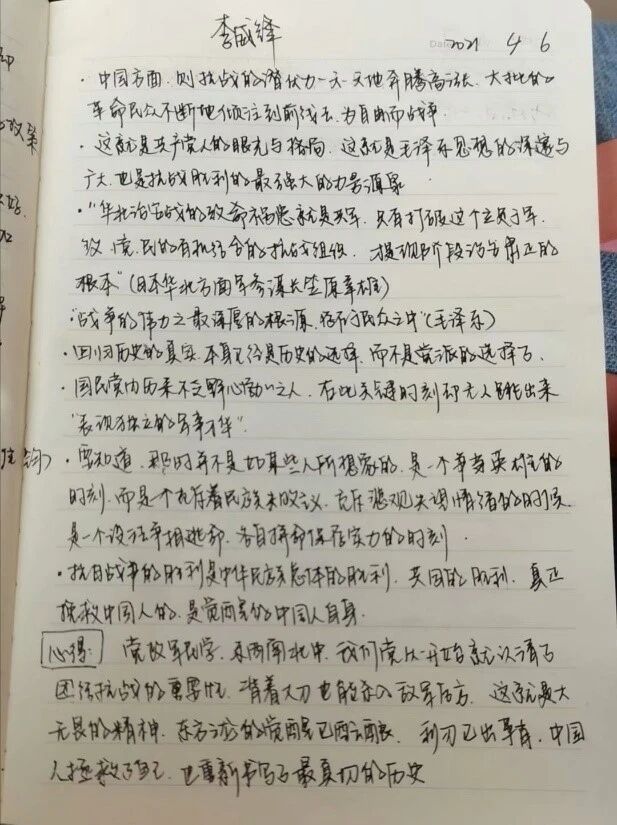 李威锋 2021 4 6
· 中国方面,则抗战的潜伏力一天一天地奔腾高涨,大批的
革命民众不断地倾注到前线去,为自由而战争
· 这就是共产党人的眼光与格局,这就是毛泽东思想的深邃与
广大,也是抗战胜利的最强大的力量源泉
· "华北治安战的致命祸患就是共军,只有打破这个立足于军、
政、党、民的有机结合的抗战组织,才是现阶段治安肃正的
根本"(日本华北方面军参谋长笠原幸雄)
· "战争的伟力之最深厚的根源,存于民众之中"(毛泽东)
· 回归历史的真实,本身已经是历史的选择,而不是党派的选择了.
· 国民党内历来不乏野心勃勃之人,在此关键时刻却无人能出来
"表现独立的军事才华".
· 要知道,那时并不是如某些人所想象的,是一个争当英雄的
时刻,而是个充斥着民族失败主义,充斥悲观失调情绪的时候
是一个设法争相逃命,各自拼命保存实力的时刻.
· 抗日战争的胜利是中华民族总体的胜利,共同的胜利,真正
拯救中国人的,是觉醒的中国人自身.
心得: 党政军民学,东西南北中,我们党从一开始就认清了
团结抗战的重要性,背着大刀也能杀入敌军后方,这就是大
无畏的精神,东方的觉醒已,利刃已出,中国
人拯救了自己,也重新书写了最真切的历史